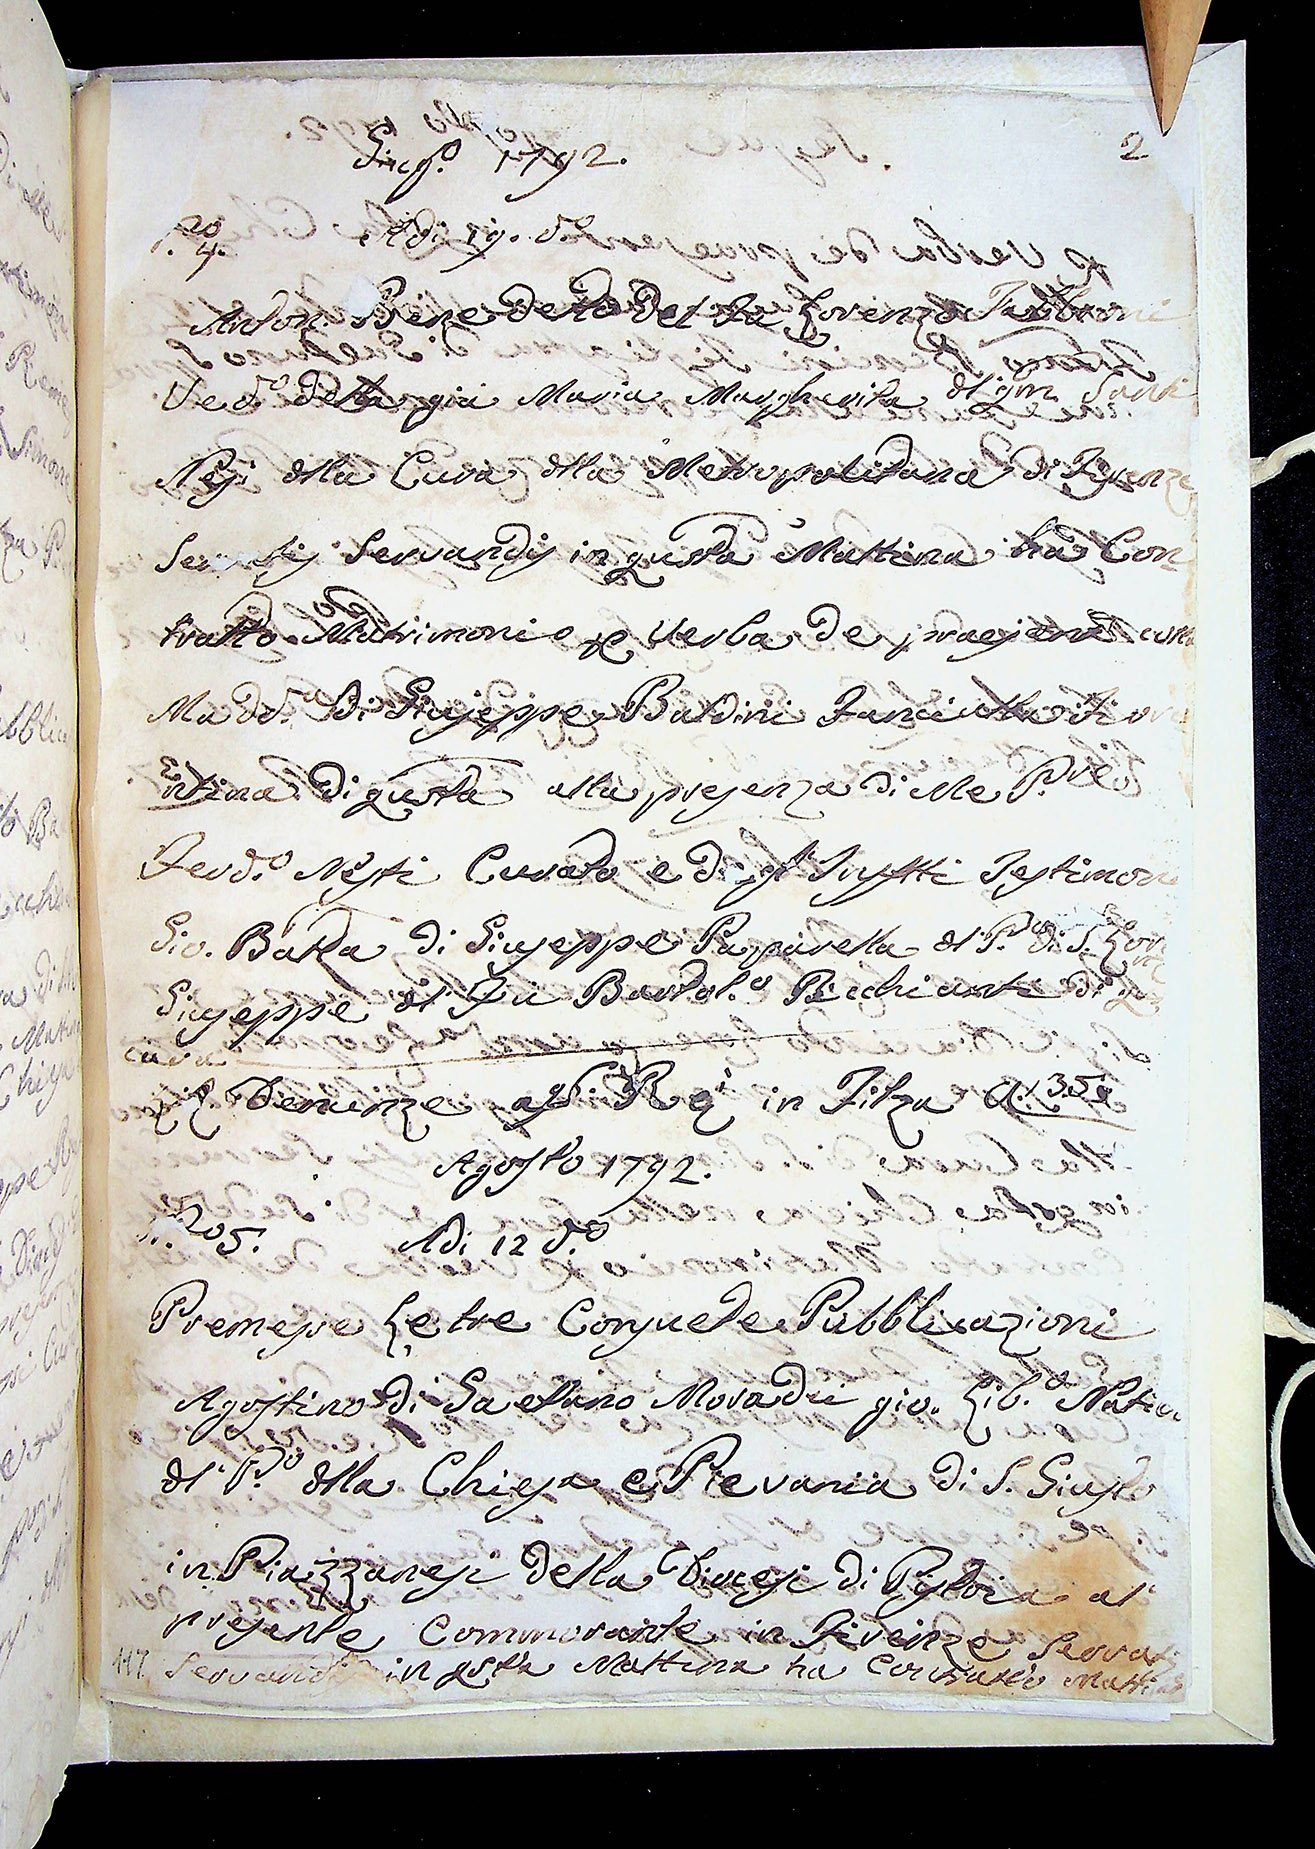 Giug.o 1792.
2
N.o 4. Adi 19. d.o
Anton Benedetto del fu Lorenzo Tabbroni
Ved.o della già Maria Margherita del qm. Santi
Nesi dlla Cura dlla Metropolitana di Firenze
Servatis Servandis in questa Mattina ha Con-
tratto Matrimonio p verba de praesenti colla
Ma dd.a di Giuseppe Baldini Fanciulla Fiore
ntina di questa alla presenza di Me P.re
Ferd.o Nesti Curato e di gl' Infrtti Testimoni
Gio. Batta di Giuseppe Paparella dl P.o di S. Lor.
Giuseppe dl Fu Bartol.o Picchianti di qsta
Cura.
Denunze in Filza a 35
Agosto 1792.
N.o 5. Adi 12 d.o
Premesse Le tre Consuete Pubblicazioni
Agostino di Gaettano Moradei gio. Lib.o Nativo
dl P.o dlla Chiesa e Pievania di S. Giusto
in Piazzanesi della Diocesi di Pistoia al
presente Commorante in Firenze Servatis
117. Servandis in qsta Mattina ha Contratto Matri